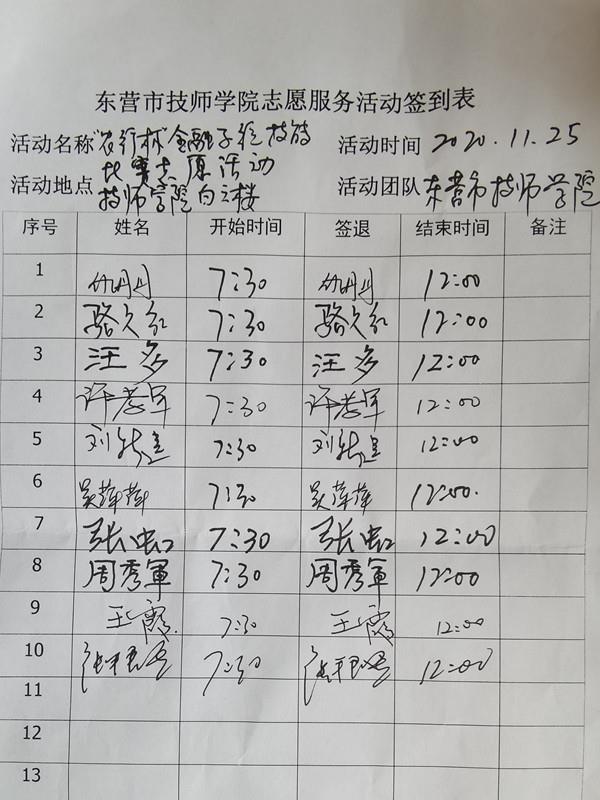 东营市技师学院志愿服务活动签到表
活动名称 "农行杯"金融
比赛志愿活动
活动时间 2020.11.25
活动地点 技师学院
活动团队 东营市技师学院
序号 姓名 开始时间 签退 结束时间 备注
1 7:30 12:00
2 骆久红 7:30 骆久红 12:00
3 汪多 7:30 汪多 12:00
4 许孝军 7:30 许孝军 12:00
5 7:30 12:00
6 吴萍萍 7:30 吴萍萍 12:00.
7 张虹 7:30 张虹 12:00
8 周秀军 7:30 周秀军 12:00
9 王霞 7:30 王霞 12:00
10 7:30 12:00
11
12
13